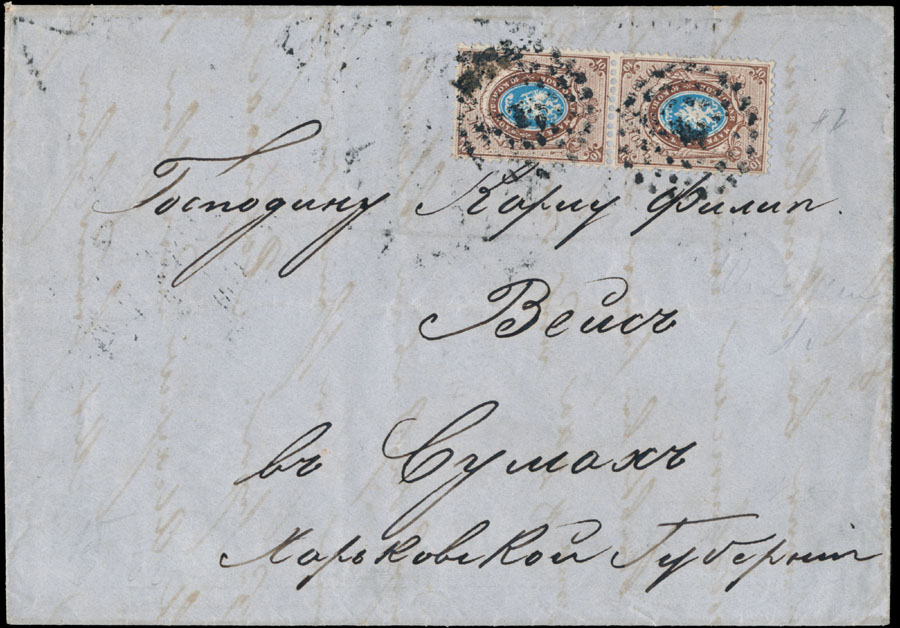 Господину Карлу Филип.
Вейсъ
въ Сумахъ
Харьковской Губерніи